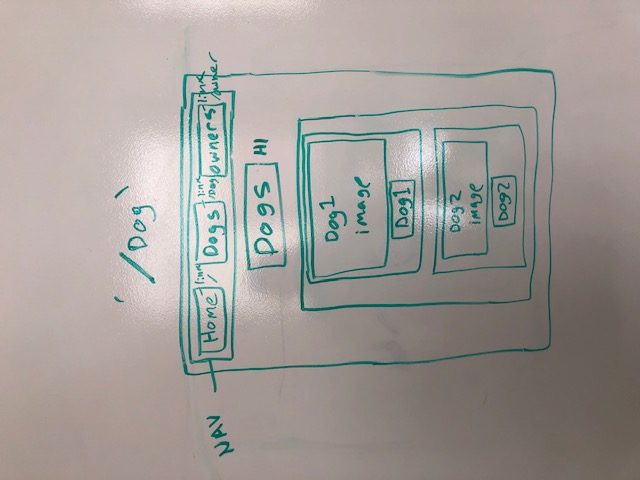 '/Dog'
NAV
Home link / Dogs link /Dog owners link /owner
Dogs H1
Dog1
image
Dog1
Dog2
image
Dog2